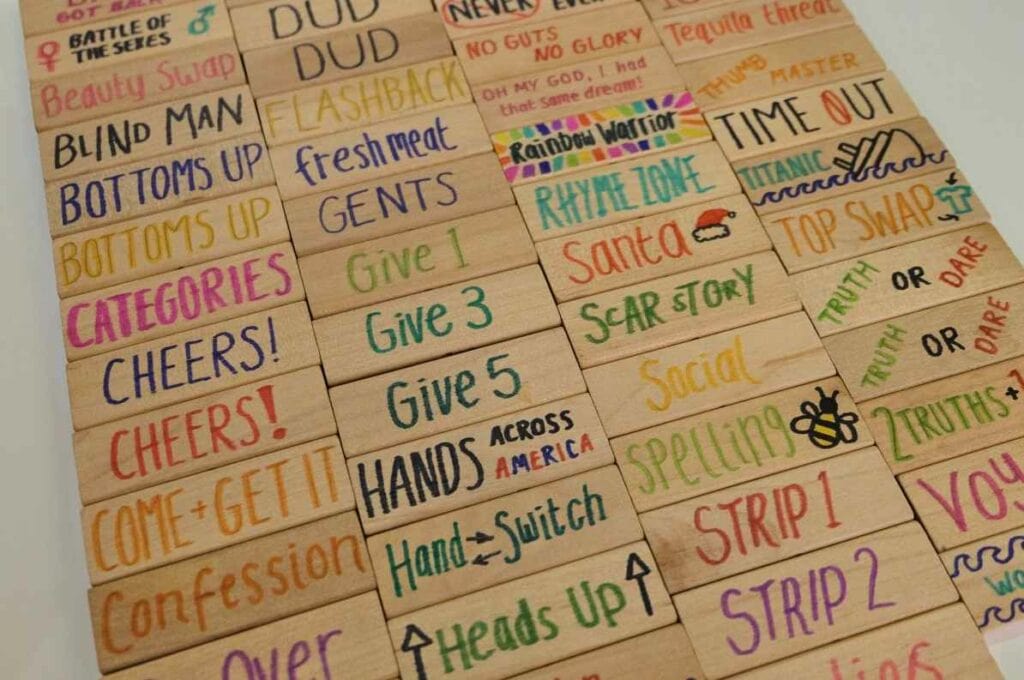 GOT BACK
BATTLE OF
THE SEXES
Beauty Swap
BLIND MAN
BOTTOMS UP
BOTTOMS UP
CATEGORIES
CHEERS!
CHEERS!
COME + GET IT
Confession
Over
DUD
DUD
FLASHBACK
fresh meat
GENTS
Give 1
Give 3
Give 5
HANDS ACROSS
AMERICA
Hand Switch
Heads Up
NEVER EVER
NO GUTS
NO GLORY
OH MY GOD, I had
that same dream!
Rainbow Warrior
RHYME ZONE
Santa
ScAR STORY
Social
Spelling
STRIP 1
STRIP 2
Tequila threat
THUMB MASTER
TIME OUT
TITANIC
TOP SWAP
TRUTH OR DARE
TRUTH OR DARE
2 TRUTHS + 1
VOY